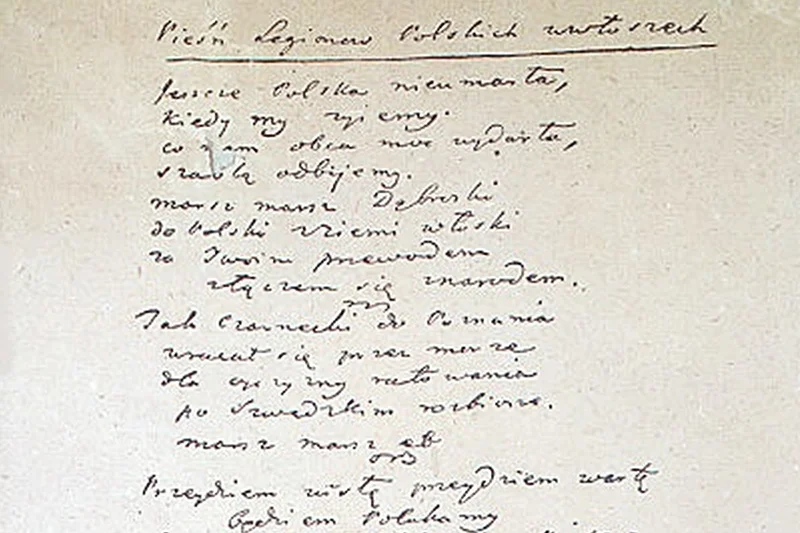 Pieśń Legionow Polskich wewłoszech
Jeszcze Polska nieumarła,
kiedy my zyiemy.
co nam obca moc wydarła,
szablą odbijemy.
marsz marsz Dąbroski
do Polski zziemi włoski
za Twoim przewodem
złączem się znarodem.
Jak Czarnecki do Poznania
wracał się przez morze
dla oyczyzny ratowania
po Szwedzkim rozbiorze.
marsz marsz
Przeydziem wisłę przeydziem wartę
będziem Polakamy